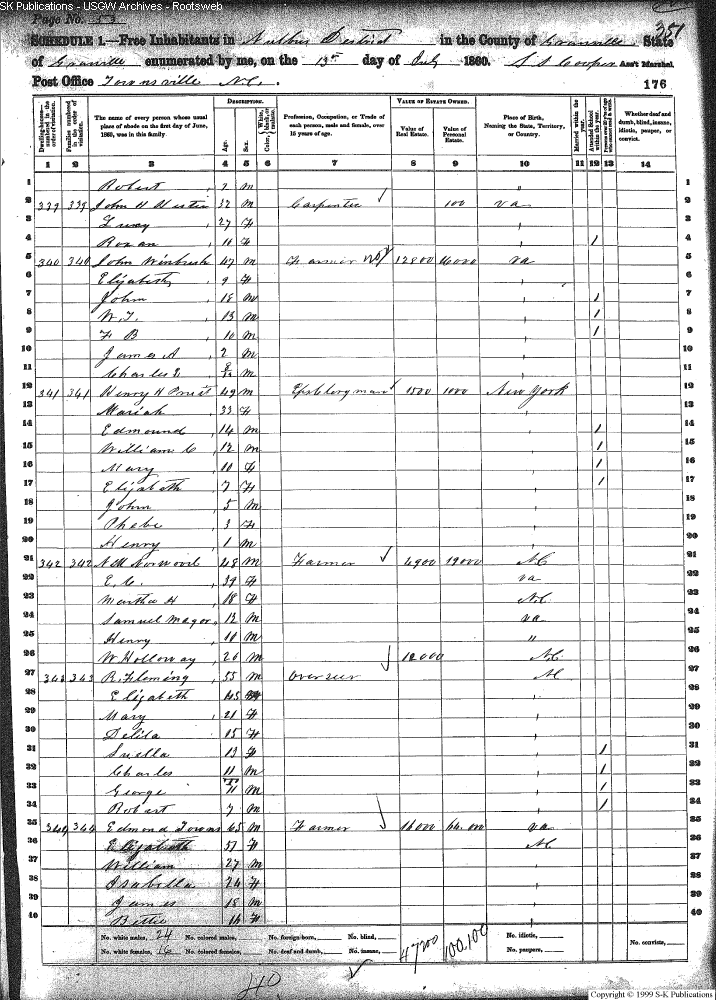 SK Publications - USGW Archives - Rootsweb
Page No. 53
351
SCHEDULE 1.—Free Inhabitants in Nutbush District in the County of Granville State
of Granville enumerated by me, on the 13th day of July 1860. S S Cooper Ass't Marshal.
Post Office Townsville N.C. 176
Dwelling-houses—numbered in the order of visitation.
Families numbered in the order of visitation.
The name of every person whose usual place of abode on the first day of June, 1860, was in this family.
DESCRIPTION.
Age.
Sex.
Color, White, black, or mulatto.
Profession, Occupation, or Trade of each person, male and female, over 15 years of age.
VALUE OF ESTATE OWNED.
Value of Real Estate.
Value of Personal Estate.
Place of Birth, Naming the State, Territory, or Country.
Married within the year.
Attended School within the year.
Whether deaf and dumb, blind, insane, idiotic, pauper, or convict.
1 2 3 4 5 6 7 8 9 10 11 12 13 14
1 Robert 2 M " 1
2 339 339 John H 32 M Carpenter 100 Va 2
3 Lucy 27 F 3
4 Roxan 11 F 1 4
5 340 340 John Winbush 47 M Farmer 12800 16000 Va 5
6 Elizabeth 9 F 6
7 John 18 M 1 7
8 W. T. 13 M 1 8
9 F B 10 M 1 9
10 James A 2 M 10
11 Charles E M 11
12 341 341 Henry H Prout 49 M Eps Clergyman 1500 1000 New York 12
13 Mariah 33 F 13
14 Edmound 14 M 1 14
15 William C 12 M 1 15
16 Mary 10 F 1 16
17 Elizabeth 7 F 1 17
18 John 5 M 18
19 Phebe 3 F 19
20 Henry 1 M 20
21 342 342 N M Norwood 48 M Farmer 4900 19000 NC 21
22 E. C. 39 F Va 22
23 Martha H 18 F N.C. 23
24 Samuel Mayor 12 M Va 24
25 Henry 10 M " 25
26 W Holloway 26 M 12000 N.C. 26
27 343 343 R. Fleming 55 M Overseer NC 27
28 Elizabeth 45 F 28
29 Mary 21 F 29
30 Delila 15 F 30
31 Suella 13 F 1 31
32 Charles 11 M 1 32
33 George 11 M 1 33
34 Robert 7 M 1 34
35 344 344 Edmond Towns 65 M Farmer 16000 64,000 Va 35
36 Elizabeth 57 F NC 36
37 William 27 M 37
38 Isabella 24 F 38
39 James 18 M 39
40 Bettie 16 F 40
No. white males, 24 No. colored males, No. foreign born, No. blind, No. idiotic,
No. white females, 16 No. colored females, No. deaf and dumb, No. insane, 47200 100,100 No. paupers, No. convicts,
40
Copyright © 1999 S-K Publications